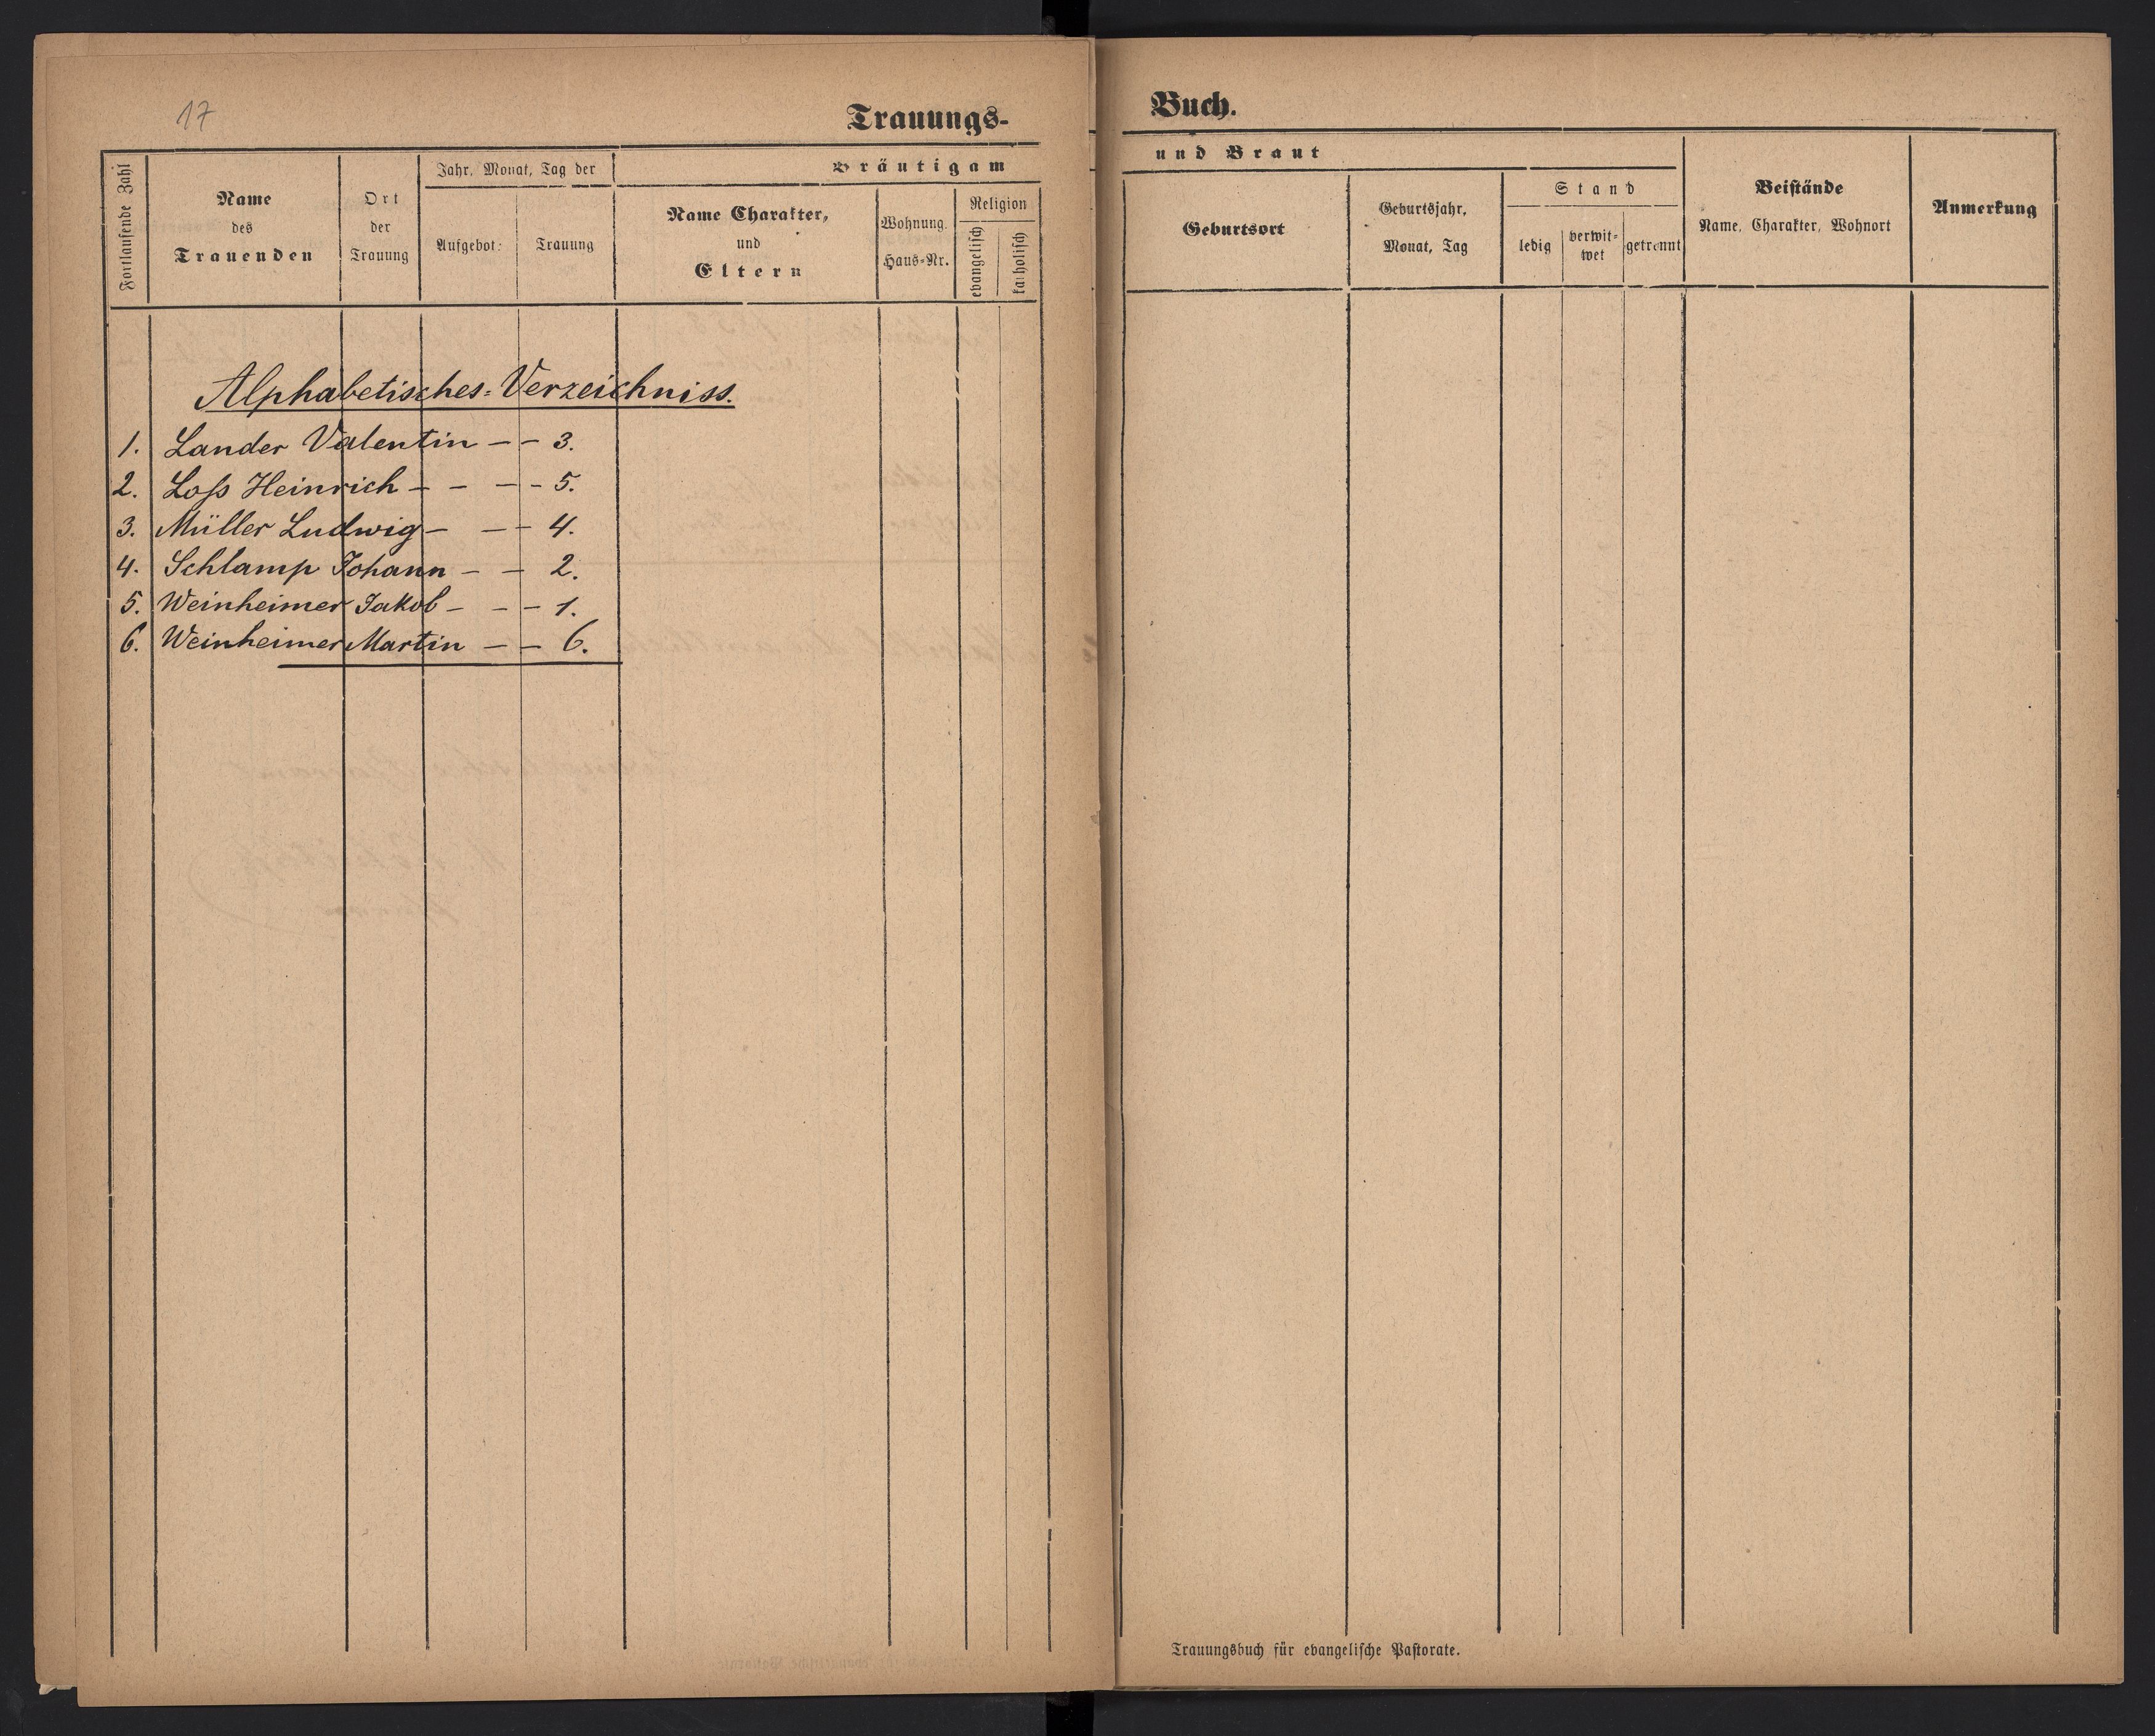 17
Trauungs-
Fortlaufende Zahl
Name
des
Trauenden
Ort
der
Trauung
Jahr, Monat, Tag der
Aufgebot:
Trauung
Bräutigam
Name Charakter,
und
Eltern
Wohnung.
Haus-Nr.
Religion
evangelisch
katholisch
Alphabetisches=Verzeichniss.
1. Lander Valentin – – 3.
2. Loſs Heinrich – – – – 5.
3. Müller Ludwig – – – 4.
4. Schlamp Johann – – 2.
5. Weinheimer Jakob – – – 1.
6. Weinheimer Martin – – 6.
Buch.
und Braut
Geburtsort
Geburtsjahr,
Monat, Tag
Stand
ledig
verwit=
wet
getrennt
Beiſtände
Name, Charakter, Wohnort
Anmerkung
Trauungsbuch für evangeliſche Paſtorate.